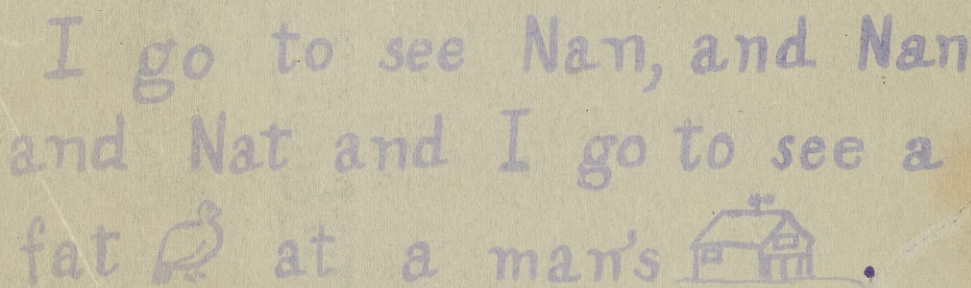 I go to see Nan, and Nan
and Nat and I go to see a
fat at a man's .